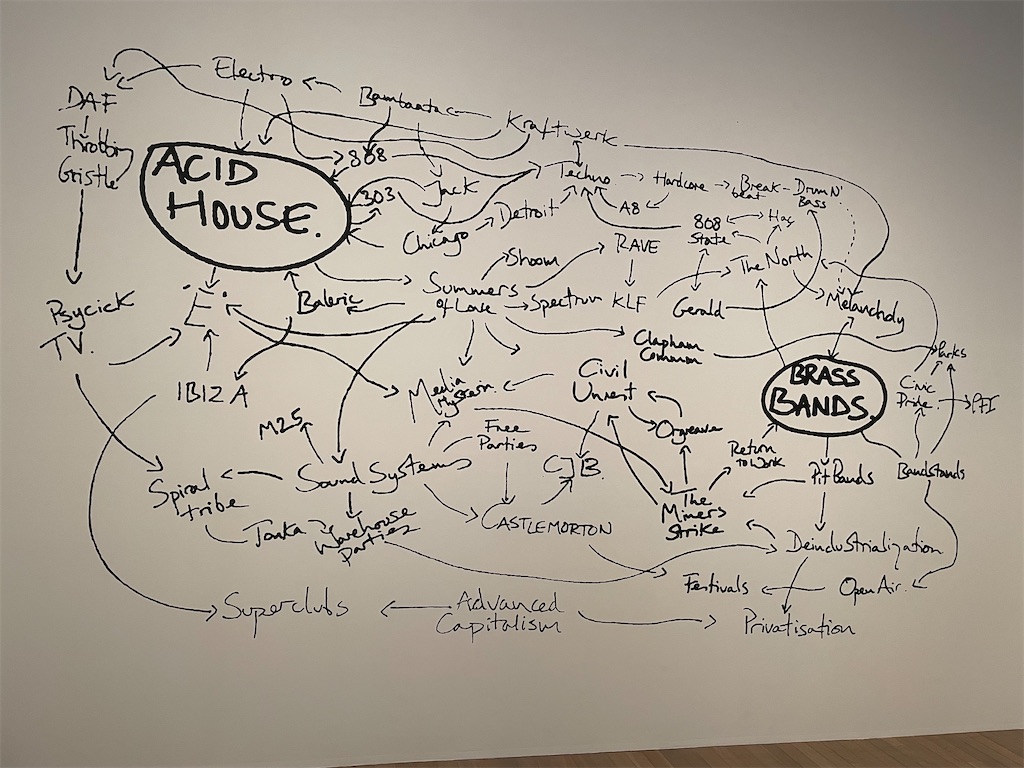 Electro
Bambaata
Kraftwerk
DAF
Throbbin
Gristle
ACID
HOUSE.
808
303
Jack
Techno
Hardcore
Break-
beat
Drum N'
Bass
A8
Detroit
Chicago
808
State
Hac
RAVE
The North
Shoom
Summers
of Love
Spectrum
KLF
Gerald
Melancholy
Psycick
TV.
'E'.
Baleric
IBIZA
Clapham
Common
Parks
BRASS
BANDS.
Civic
Pride.
PFI
Media
Hysteria.
Civil
Unrest
M25
Free
Parties
Orgreave
Return
to Work
CJB.
Sound Systems
Spiral
tribe
Pit Bands
Bandstands
The
Miners
Strike
Tonka
Warehouse
Parties
CASTLEMORTON
Deindustrialization
Festivals
Open Air.
Superclubs
Advanced
Capitalism
Privatisation